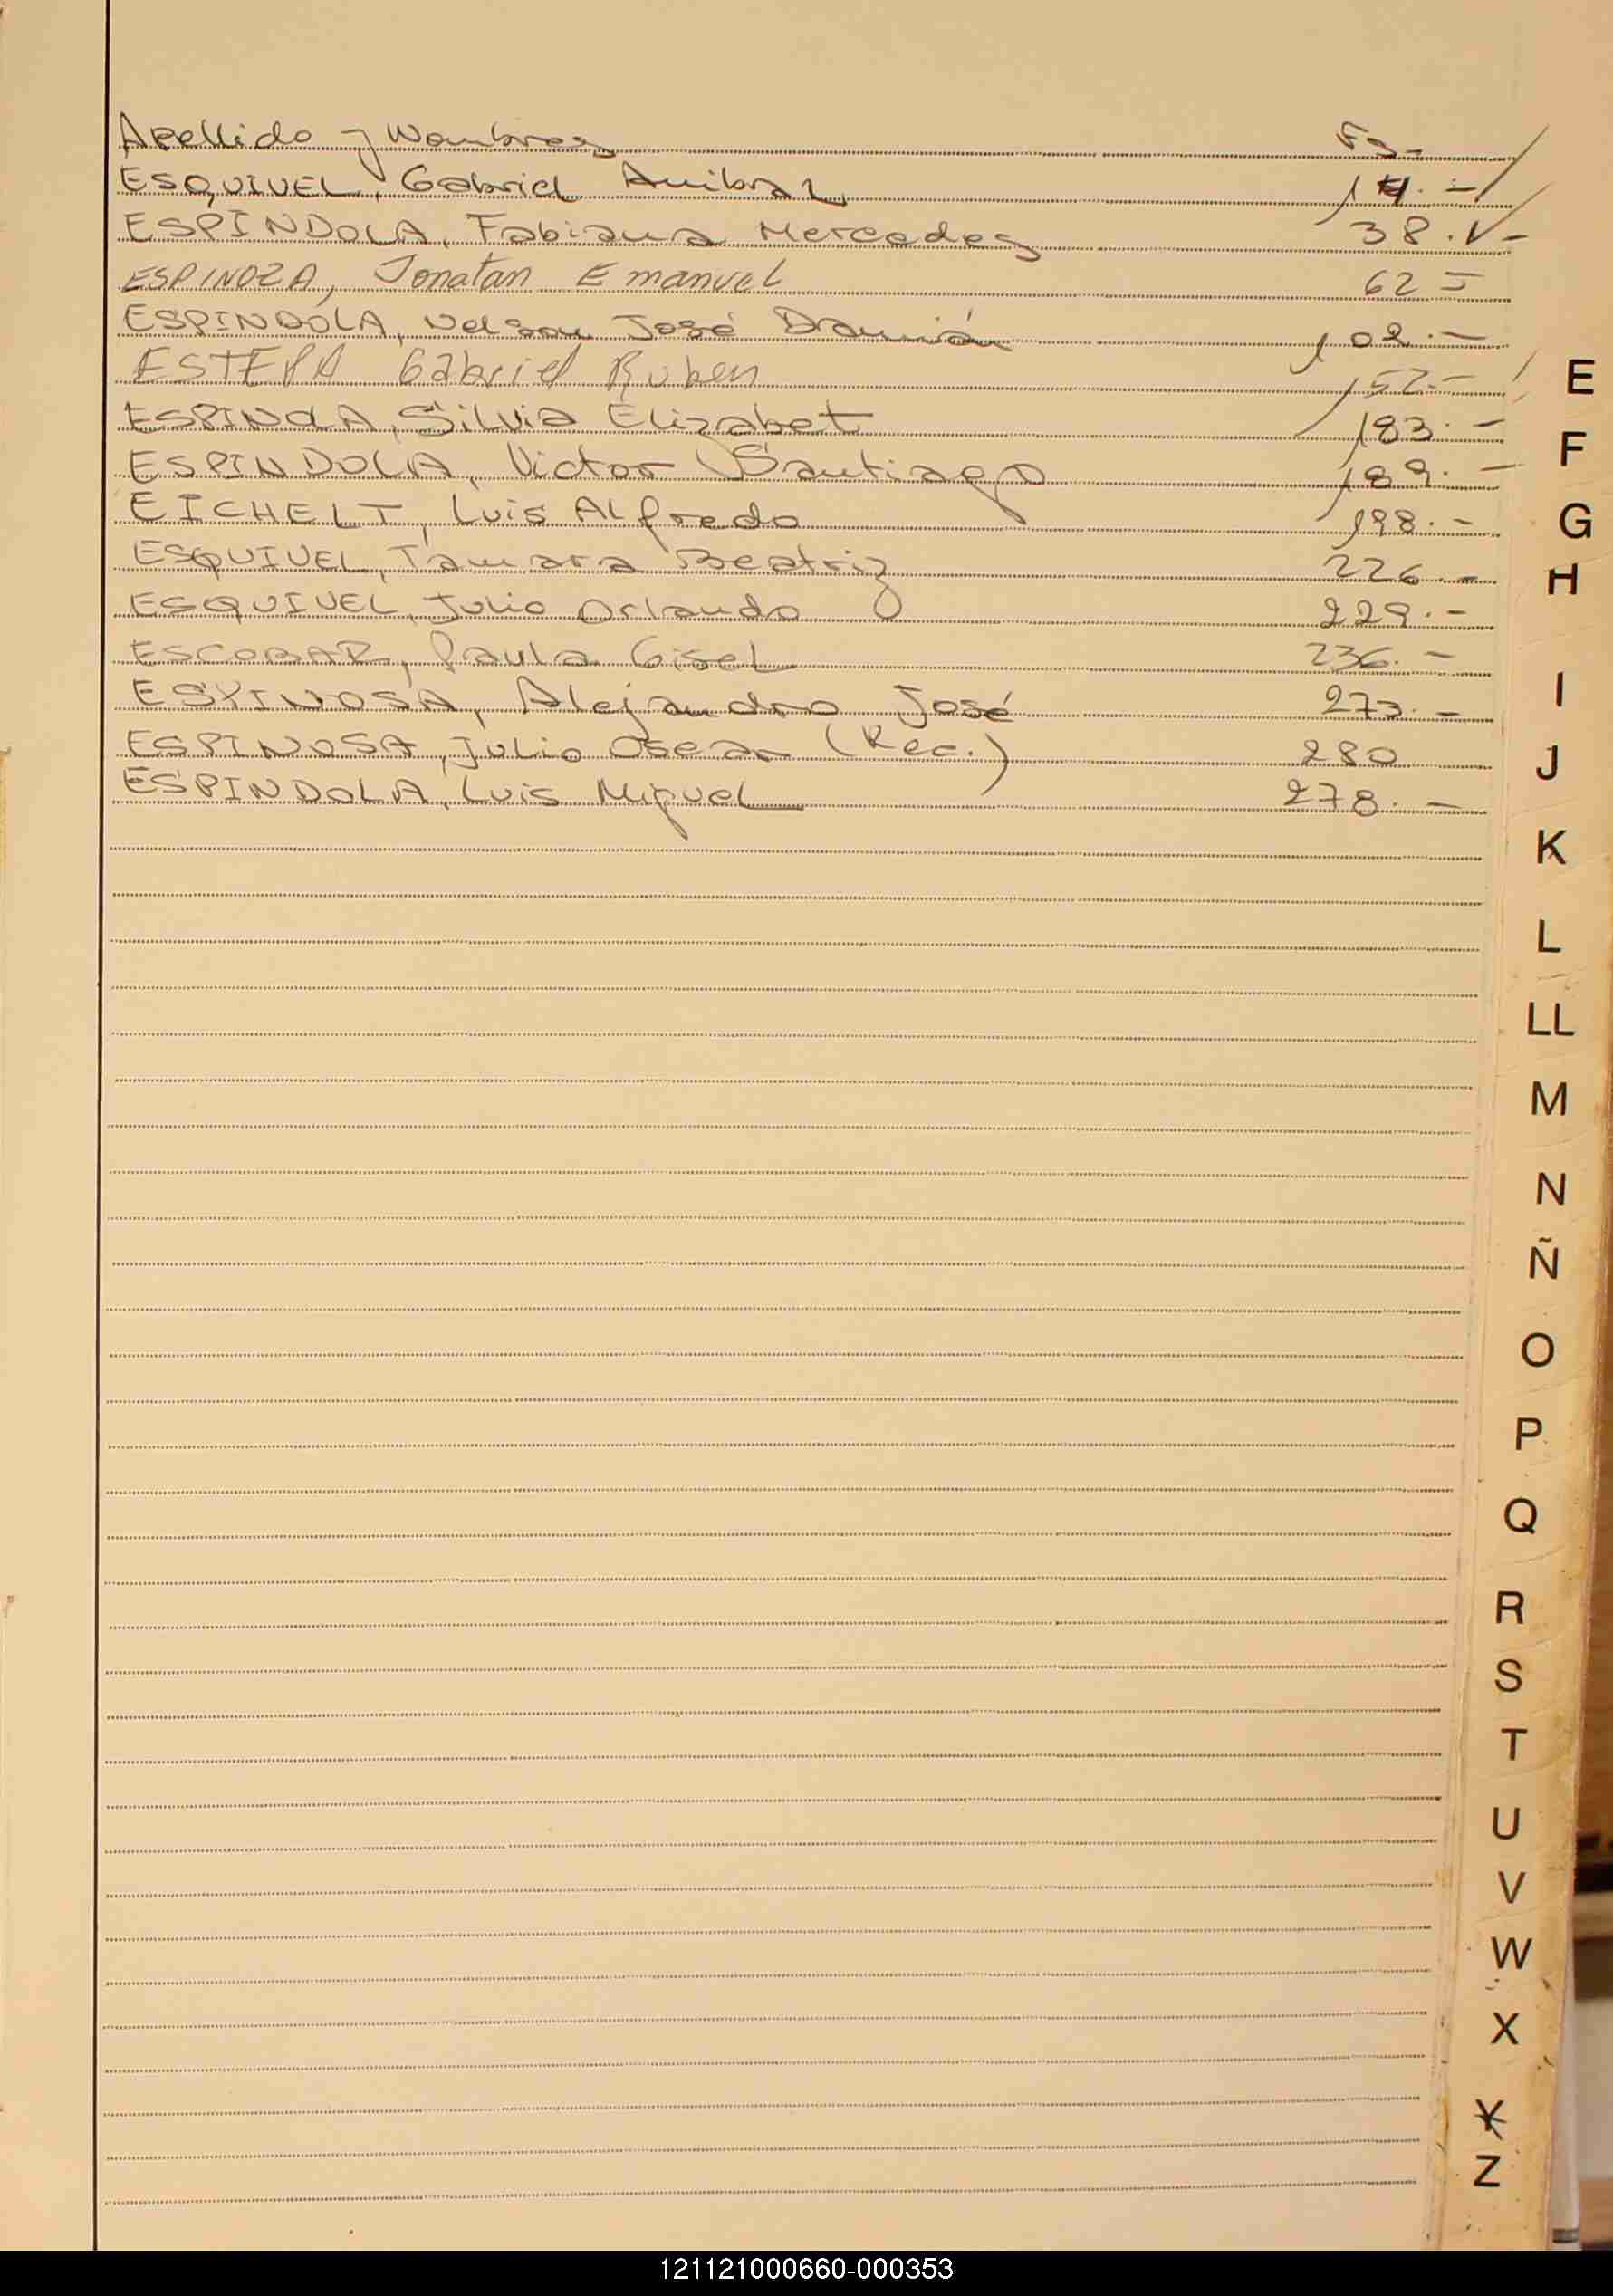 Apellido y Nombres Fs.
ESQUIVEL, Gabriel Anibal 14.-
ESPINDOLA, Fabiana Mercedes 38.-
ESPINOZA, Jonatan Emanuel 62-
ESPINDOLA, Nelson José Damián 102.-
ESTEPA Gabriel Ruben 152.-
ESPINOLA, Silvia Elizabet 183.-
ESPINDOLA, Victor Santiago 189.-
EICHELT, Luis Alfredo 198.-
ESQUIVEL, Tamara Beatriz 226.-
ESQUIVEL, Julio Orlando 229.-
ESCOBAR, Paula Gisel 236.-
ESPINOSA, Alejandro José 273.-
ESPINOSA, Julio Oscar (Rec.) 280
ESPINDOLA, Luis Miguel 278.-
E
F
G
H
I
J
K
L
LL
M
N
Ñ
O
P
Q
R
S
T
U
V
W
X
Y
Z
121121000660-000353